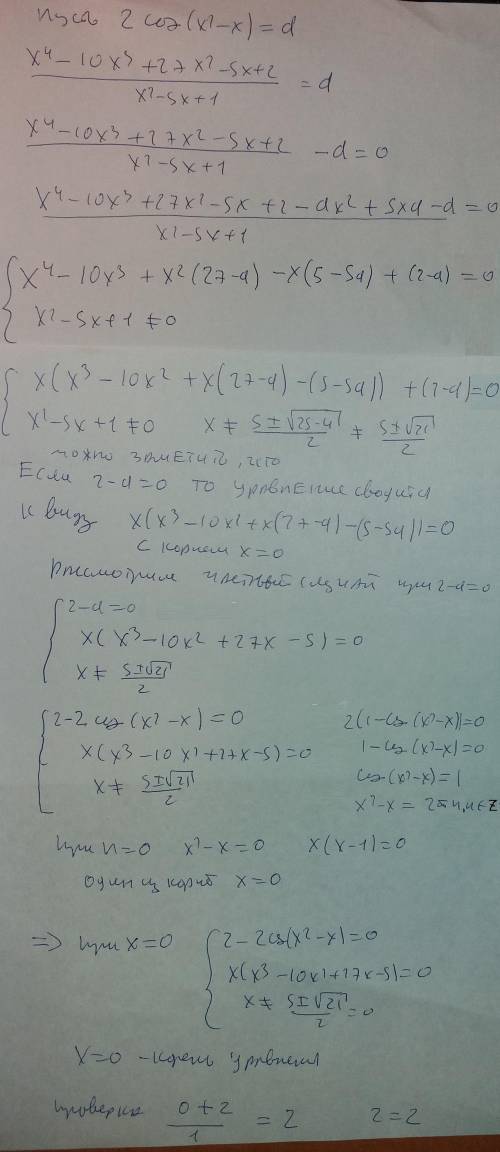 Пусть 2 cos(x²-x) = d
x⁴ - 10x³ + 27x² - 5x + 2 / x² - 5x + 1 = d
x⁴ - 10x³ + 27x² - 5x + 2 / x² - 5x + 1 - d = 0
x⁴ - 10x³ + 27x² - 5x + 2 - dx² + 5xd - d / x² - 5x + 1 = 0
{ x⁴ - 10x³ + x²(27-d) - x(5-5d) + (2-d) = 0
x² - 5x + 1 ≠ 0
{ x(x³ - 10x² + x(27-d) - (5-5d)) + (2-d) = 0
x² - 5x + 1 ≠ 0 x ≠ 5±√25-4 / 2 ≠ 5±√21 / 2
можно заметить, что
Если 2-d=0 то уравнение сводится
к виду x(x³ - 10x² + x(27-d) - (5-5d)) = 0
с корнем x=0
Рассмотрим частный случай при 2-d=0
{ 2-d=0
x(x³ - 10x² + 27x - 5) = 0
x ≠ 5±√21 / 2
{ 2-2cos(x²-x) = 0 2(1-cos(x²-x))=0
x(x³ - 10x² + 27x - 5) = 0 1-cos(x²-x)=0
x ≠ 5±√21 / 2 cos(x²-x) = 1
x²-x = 2πn, n∈Z
при n=0 x²-x=0 x(x-1)=0
один из корней x=0
=> при x=0 { 2-2cos(x²-x)=0
x(x³ - 10x² + 27x - 5) = 0
x ≠ 5±√21 / 2 = 0
x=0 - корень уравнения
проверка 0+2 / 1 = 2 2=2